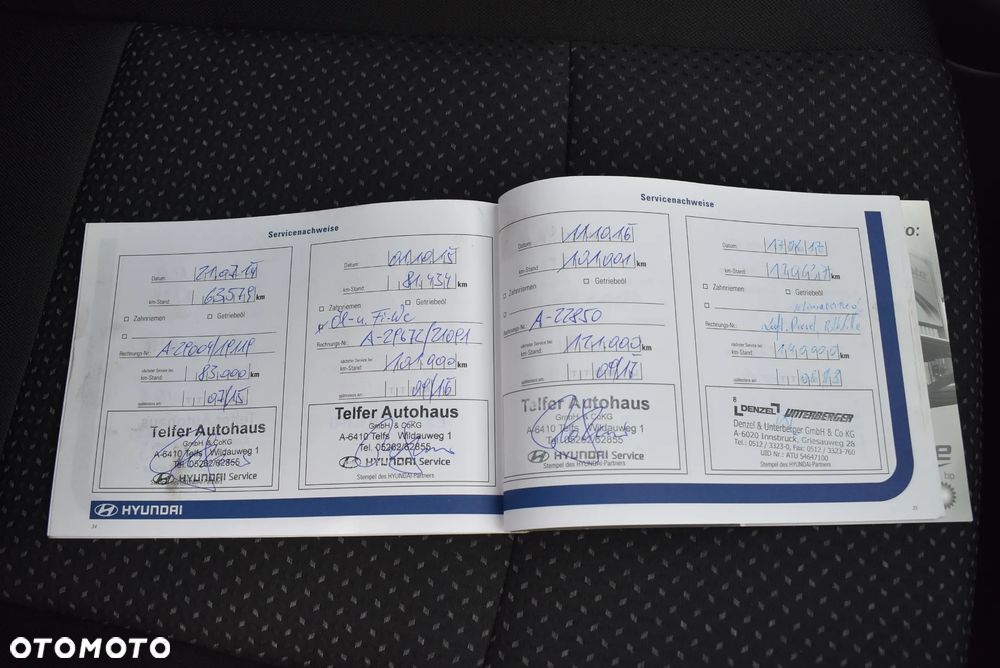 Servicenachweise
Datum: 21.07.14
km-Stand: 63579 km
Zahnriemen Getriebeöl
Rechnungs-Nr.: A-29004/19119
nächster Service bei
km-Stand: 83.000 km
spätestens am: 07/15
Telfer Autohaus
GmbH & CoKG
A-6410 Telfs Wildauweg 1
Tel. 05262/62855
HYUNDAI Service
Stempel des HYUNDAI-Partners
Datum: 01.10.15
km-Stand: 81.434 km
Zahnriemen Getriebeöl
Öl- u. Fi-We
Rechnungs-Nr.: A-29672/21091
nächster Service bei
km-Stand: 101.000 km
spätestens am: 09/16
Telfer Autohaus
GmbH & CoKG
A-6410 Telfs Wildauweg 1
Tel. 05262/62855
HYUNDAI Service
Stempel des HYUNDAI-Partners
HYUNDAI
24
Servicenachweise
Datum: 11.10.16
km-Stand: 101.001 km
Zahnriemen Getriebeöl
Rechnungs-Nr.: A-22850
nächster Service bei
km-Stand: 121.000 km
spätestens am: 09/17
Telfer Autohaus
GmbH & CoKG
A-6410 Telfs Wildauweg 1
Tel. 05262/62855
HYUNDAI Service
Stempel des HYUNDAI-Partners
Datum:
km-Stand: km
Zahnriemen Getriebeöl
Rechnungs-Nr.: Luft, Diesel
nächster Service bei
km-Stand: km
spätestens am:
8
DENZEL UNTERBERGER
Denzel & Unterberger GmbH & Co KG
A-6020 Innsbruck, Griesauweg 28
Tel.: 0512 / 3323-0, Fax: 0512 / 3323-760
UID Nr.: ATU 54647100
Stempel des HYUNDAI-Partners
25
o:
OTOMOTO